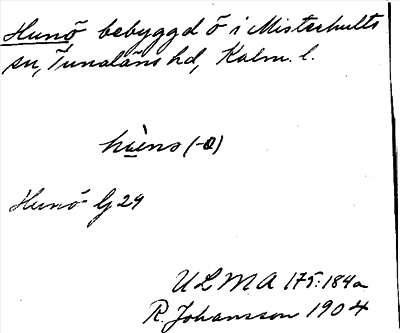 Hunö bebyggd ö i Misterhults
sn, Tunaläns hd, Kalm. l.
hùns (-ö)
Hunö Gg 29
ULMA 175:184a
R. Johansson 1904